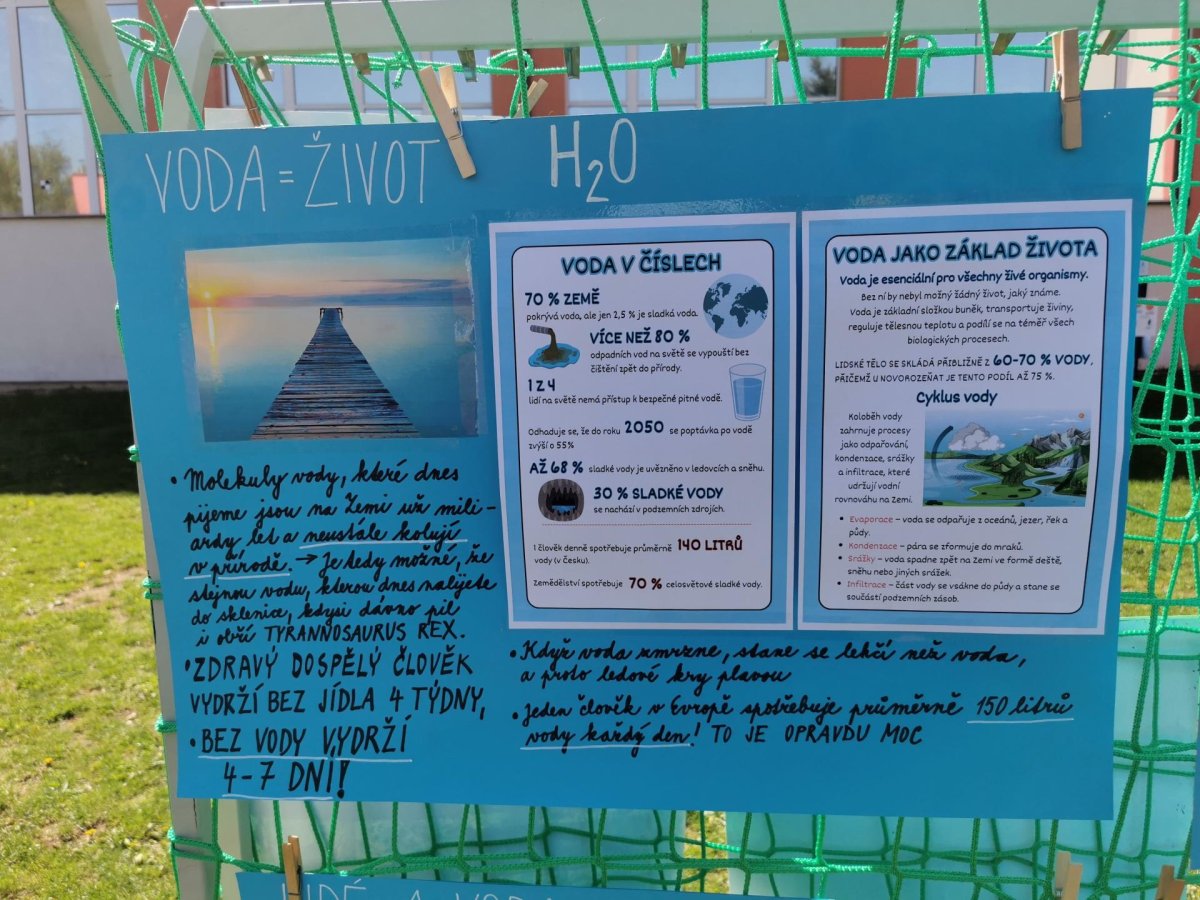 VODA = ŽIVOT
H₂O
VODA V ČÍSLECH
70 % ZEMĚ
pokrývá voda, ale jen 2,5 % je sladká voda.
VÍCE NEŽ 80 %
odpadních vod na světě se vypouští bez
čištění zpět do přírody.
1 Z 4
lidí na světě nemá přístup k bezpečné pitné vodě.
Odhaduje se, že do roku 2050 se poptávka po vodě
zvýší o 55%
AŽ 68 % sladké vody je uvězněno v ledovcích a sněhu.
30 % SLADKÉ VODY
se nachází v podzemních zdrojích.
1 člověk denně spotřebuje průměrně 140 LITRŮ
vody (v Česku).
Zemědělství spotřebuje 70 % celosvětové sladké vody.
VODA JAKO ZÁKLAD ŽIVOTA
Voda je esenciální pro všechny živé organismy.
Bez ní by nebyl možný žádný život, jaký známe.
Voda je základní složkou buněk, transportuje živiny,
reguluje tělesnou teplotu a podílí se na téměř všech
biologických procesech.
LIDSKÉ TĚLO SE SKLÁDÁ PŘIBLIŽNĚ Z 60-70 % VODY,
PŘIČEMŽ U NOVOROZEŇAT JE TENTO PODÍL AŽ 75 %.
Cyklus vody
Koloběh vody
zahrnuje procesy
jako odpařování,
kondenzace, srážky
a infiltrace, které
udržují vodní
rovnováhu na Zemi.
• Evaporace – voda se odpařuje z oceánů, jezer, řek a
půdy.
• Kondenzace – pára se zformuje do mraků.
• Srážky – voda spadne zpět na Zemi ve formě deště,
sněhu nebo jiných srážek.
• Infiltrace – část vody se vsákne do půdy a stane se
součástí podzemních zásob.
• Molekuly vody, které dnes
pijeme jsou na Zemi už mili-
ardy let a neustále kolují
v přírodě. → Je tedy možné, že
stejnou vodu, kterou dnes nalijete
do sklenice, kdysi dávno pil
i obří TYRANNOSAURUS REX.
• ZDRAVÝ DOSPĚLÝ ČLOVĚK
VYDRŽÍ BEZ JÍDLA 4 TÝDNY,
• BEZ VODY VYDRŽÍ
4-7 DNÍ!
• Když voda zmrzne, stane se lehčí než voda,
a proto ledové kry plavou
• Jeden člověk v Evropě spotřebuje průměrně 150 litrů
vody každý den! TO JE OPRAVDU MOC
LIDÉ A VODA